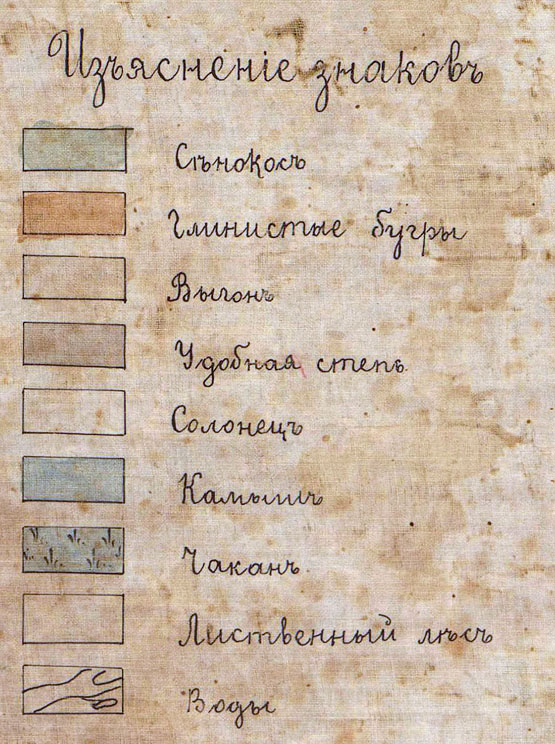 Изъясненіе знаковъ
Сѣнокосъ
Глинистые бугры
Выгонъ
Удобная степь
Солонецъ
Камышъ
Чаканъ
Лиственный лѣсъ
Воды